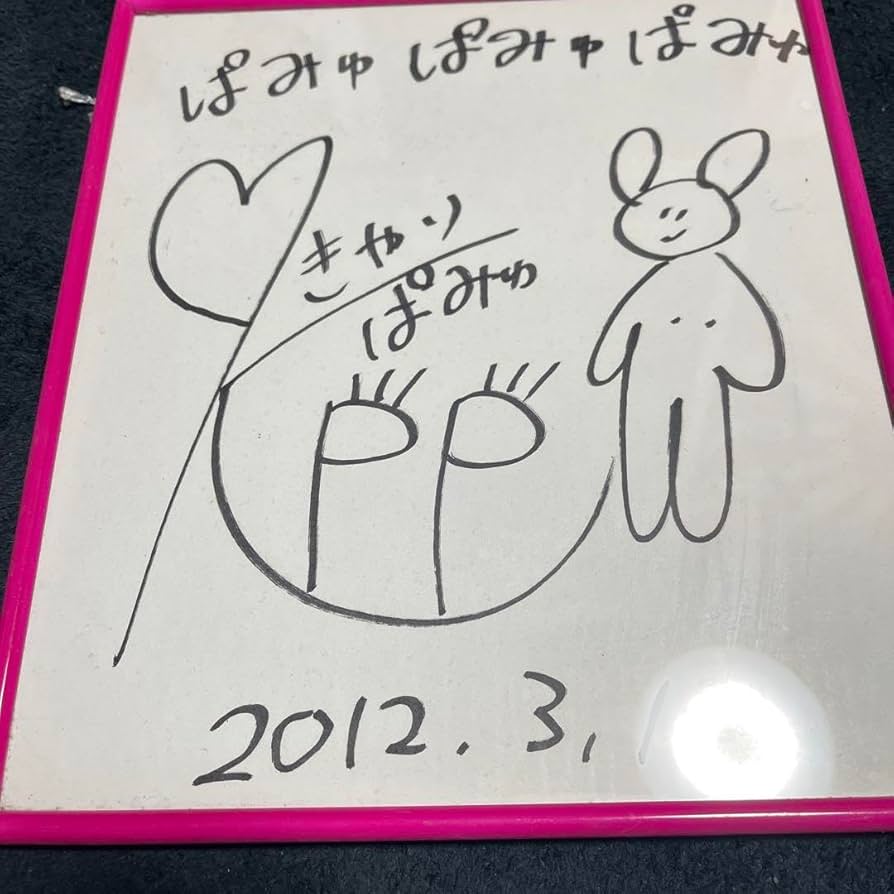 ぱみゅぱみゅぱみゅ
きゃりー
ぱみゅ
PP
2012.3.1